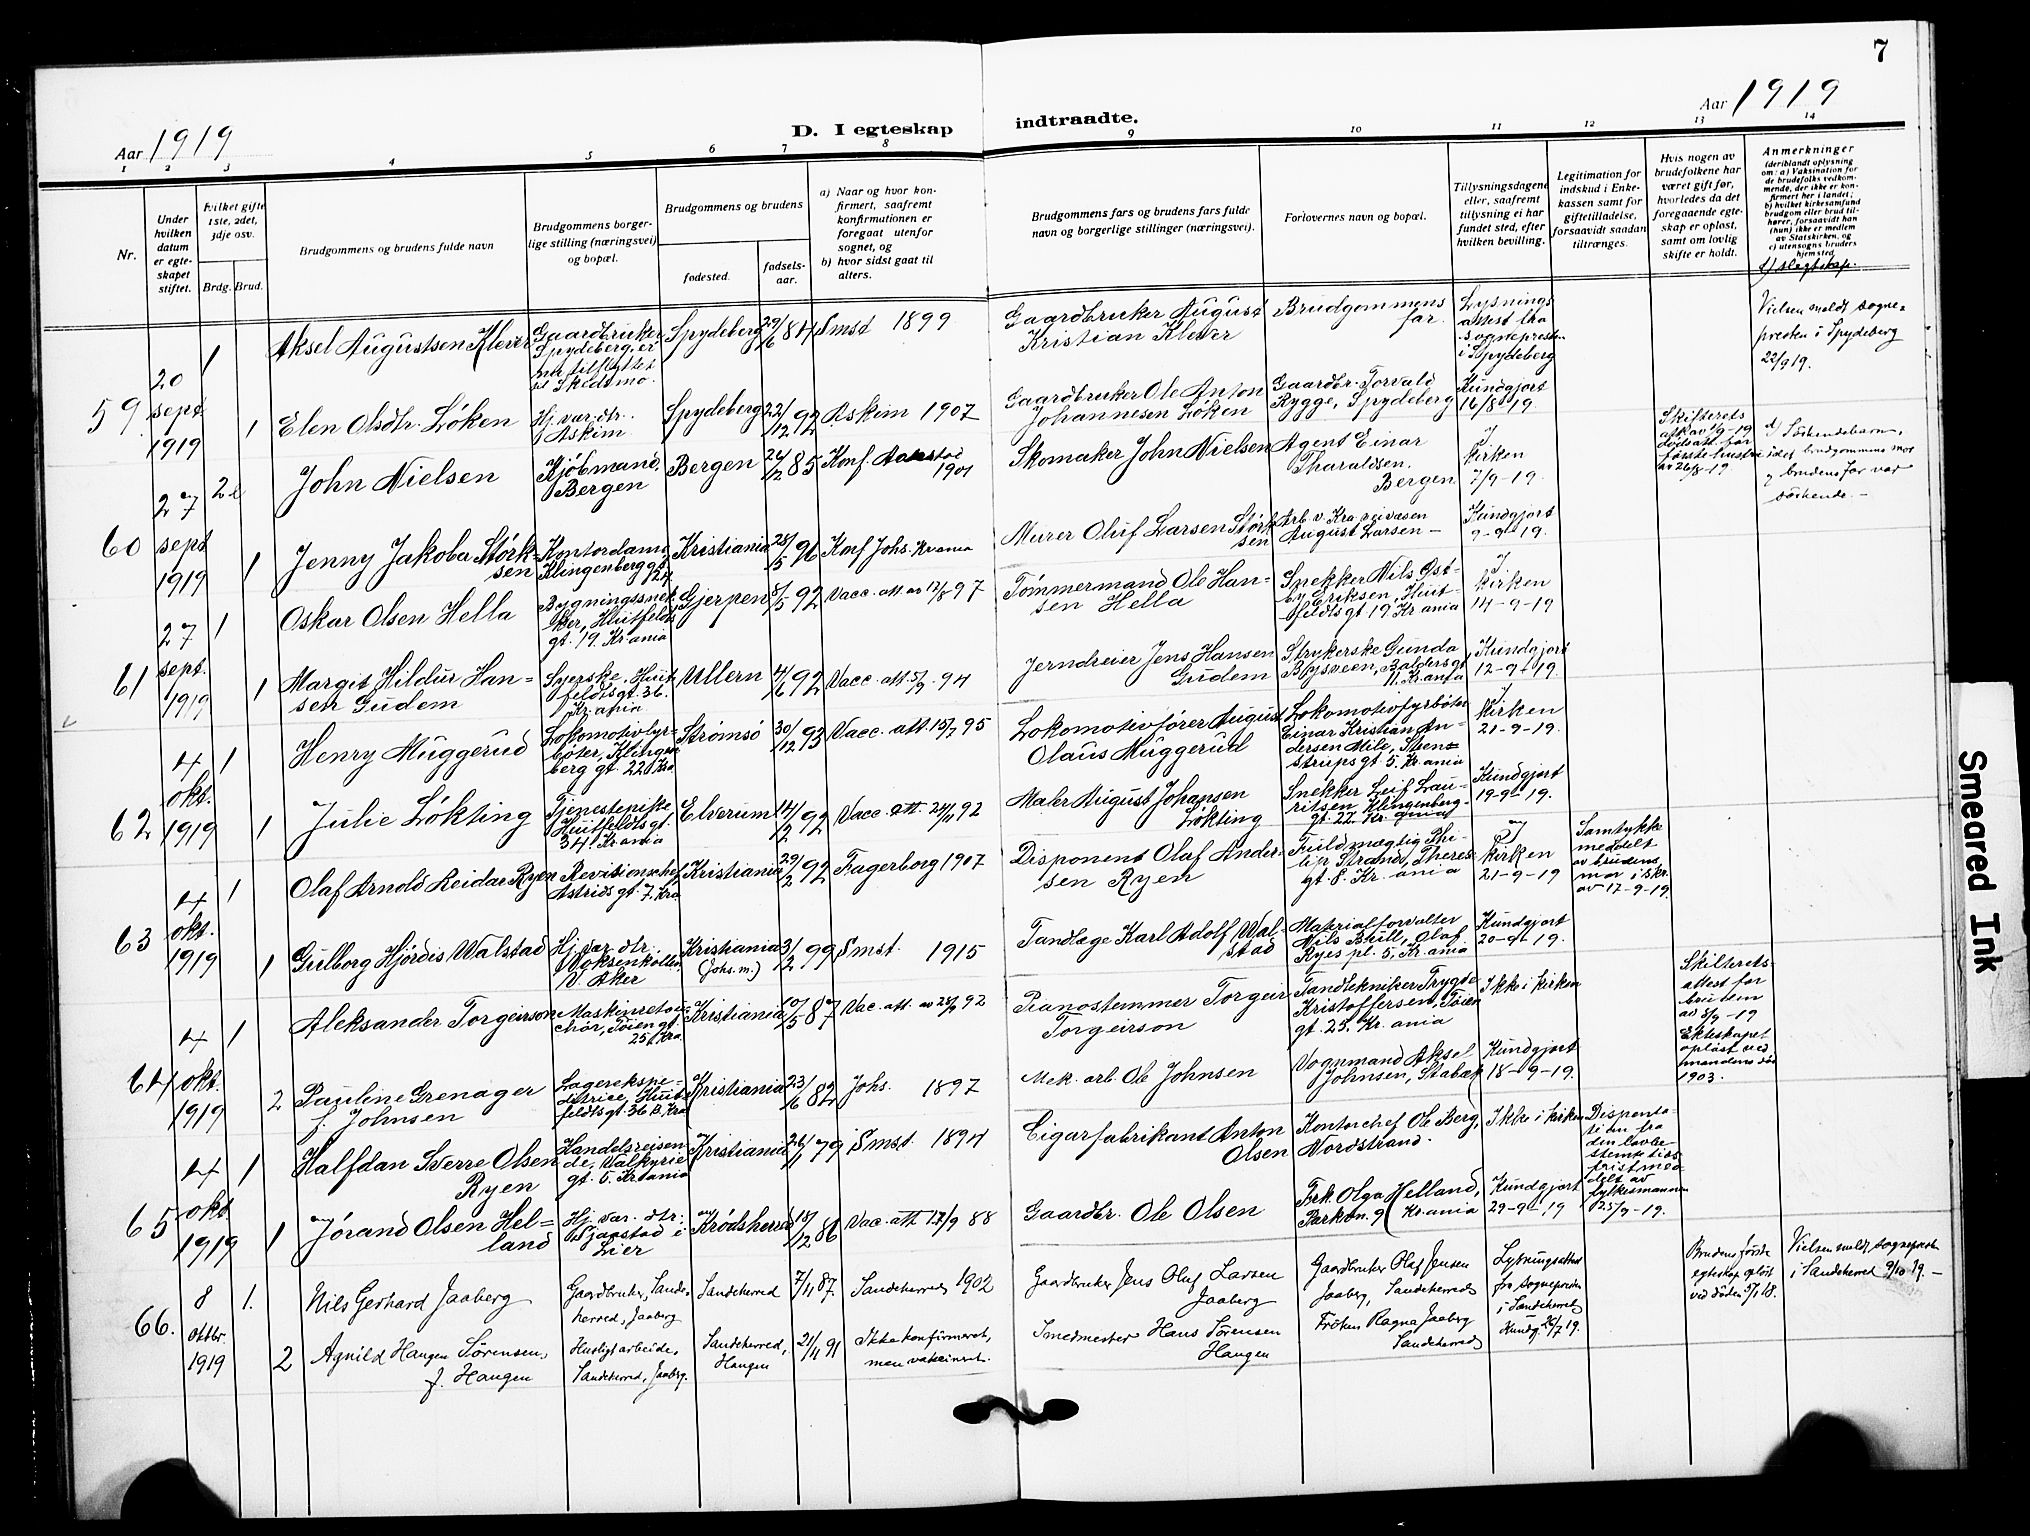 7
Aar 1919
D. I egteskap indtraadte.
Aar 1919
1 2 3 4 5 6 7 8 9 10 11 12 13 14
Nr.
Under hvilken datum er egteskapet stiftet.
Hvilket gifte 1ste, 2det, 3dje osv.
Brdg. Brud.
Brudgommens og brudens fulde navn
Brudgommens borgerlige stilling (næringsvei) og bopæl.
Brudgommens og brudens
fødested.
fødselsaar.
a) Naar og hvor konfirmert, saafremt konfirmationen er foregaat utenfor sognet, og
b) hvor sidst gaat til alters.
Brudgommens fars og brudens fars fulde navn og borgerlige stillinger (næringsvei).
Forlovernes navn og bopæl.
Tillysningsdagene eller, saafremt tillysning ei har fundet sted, efter hvilken bevilling.
Legitimation for indskud i Enkekassen samt for giftetilladelse, forsaavidt saadan tiltrænges.
Hvis nogen av brudefolkene har været gift før, hvorledes da det foregaaende egteskap er opløst, samt om lovlig skifte er holdt.
Anmerkninger (deriblandt oplysning om: a) Vaksination for de brudefolks vedkommende, der ikke er konfirmert her i landet; b) hvilket kirkesamfund brudgom eller brud tilhører, forsaavidt han (hun) ikke er medlem av Statskirken, og c) utensogns bruders hjemsted
d) slegtskap.
59 20 sept 1919
1 Aksel Augustsen Klever
Gaardbruker, Spydeberg, er nu tilflyttet til Skedsmo.
Spydeberg 29/6 84 Smst 1899
Gaardbruker August Kristian Klever
Brudgommens far.
Lysningsattest fra sognepresten i Spydeberg
Vielsen meldt sognepresten i Spydeberg 22/9 19.
1 Elen Olsdtr. Løken
Hj.vær. dtr. Askim
Spydeberg 22/12 92 Askim 1907
Gaardbruker Ole Anton Johannesen Løken
Gaardbr. Torvald Rygge, Spydeberg
Kundgjort 16/8 19.
60 27 sept 1919
2 John Nielsen
Kjøbmand, Bergen
Bergen 26/2 85 Konf. 1901
Skomaker John Nielsen
Agent Einar Tharaldsen. Bergen
I kirken 7/9-19.
Skifteretsatt. av 1/9-19 dødsatt. for første hustru av 26/8-19
d) Søskendebarn, idet brudgommens mor og brudens far var søskende.-
1 Jenny Jakoba Størksen
Kontordame Klingenberg gt. 24
Kristiania 25/5 96 Konf Johs. Kr.ania
Murer Oluf Larsen Størksen
Arb. v. Kra veivæsen August Larsen -
Kundgjort 9-9-19.
61 27 sept. 1919
1 Oskar Olsen Hella
Bygningssnekker, Huitfeldts gt. 19. Kr.ania
Gjerpen 8/5 92 Vacc. att av 12/8 97
Tømmermand Ole Hansen Hella
Snekker Nils Østby Eriksen, Huitfeldtsgt 19 Kr.ania
I kirken 14-9-19
1 Margit Hildur Hansen Gudem
Syerske, Huitfeldtsgt. 36. Kr.ania
Ullern 4/6 92 Vacc. att. 5/9-94
Jerndreier Jens Hansen Gudem
Strykerske Gunda Blysveen, Baldersgt. 11. Kr.ania
Kundgjort 12-9-19.
62 4 okt. 1919
1 Henry Muggerud
Lokomotivfyrbøter, Klingenberg gt. 22 Kra
Strømsø 30/12 93 Vacc. att. 15/7 95
Lokomotivfører August Olaus Muggerud
Lokomotivfyrbøter Einar Kristian Andersen Mile, Steenstrupsgt. 5. Kr.ania
I kirken 21-9-19.
1 Julie Løkting
Tjenestepike Huitfeldtsgt. 34. Kr.ania
Elverum 14/2 92 Vacc. att. 24/11 92
Maler August Johansen Løkting
Snekker Leif Lauritsen, Klingenberggt. 22. Kr.ania
Kundgjort 19-9-19.
63 4 okt. 1919
1 Olaf Arnold Reidar Ryen
Revisionschef Astrids gt. 7. Kra
Kristiania 29/2 92 Fagerborg 1907
Disponent Olaf Andersen Ryen
Fuldmægtig Philip Strand, Theresgt. 8. Kr.ania
I kirken 21-9-19
Samtykke meddelt av brudens mor i skr. av 17-9-19.
1 Gulborg Hjørdis Walstad
Hj.vær. dtr. Voksenkollen, V. Aker
Kristiania (Johs. m.) 3/12 99 Smst. 1915
Tandlæge Karl Adolf Walstad
Materialforvalter Nils Bull, Olaf Ryes pl. 5, Kr.ania
Kundgjort 20-9-19.
64 4 okt. 1919
1 Aleksander Torgeirson
Maskinretouchør, Tøiengt. 25. Kra
Kristiania 10/5 87 Vac. att. av 28/9 92
Pianostemmer Torgeir Torgeirson
Tandtekniker Trygve Kristoffersen, Tøiengt. 25. Kr.ania
Ikke i kirken
Skifteretsattest for bruden av 8/9-19 Ekteskapet opløst ved mandens død 1903.
2 Pauline Grenager f. Johnsen
Lagerekspeditrice, Huitfeldtsgt. 36 B. Kra
Kristiania 23/6 82 Johs. 1897
Mek. arb. Ole Johnsen
Vognmand Aksel Johnsen, Stabæk
Kundgjort 18-9-19.
65 4 okt 1919
1 Halfdan Sverre Olsen Ryen
Handelsreisende, Valkyriegt. 5. Kr.ania
Kristiania 26/11 79 Smst. 1894
Cigarfabrikant Anton Olsen
Kontorchef Ole Berg, Nordstrand.
Ikke i kirken
Dispensation fra den lovbestemte tidsfrist meddelt av fylkesmannen 25/9-19.
1 Jørand Olsen Helland
Hj. vær. dtr. Gjanstad i Lier
Krødsherred 18/12 86 Vac. att 12/9 88
Gaardbr. Ole Olsen
Frk. Olga Helland, Parkvn. 9 Kr.ania
Kundgjort 29-9-19
66. 8 oktbr. 1919
1. Nils Gerhard Jaaberg
Gaardbruker, Sandeherred, Jaaberg
Sandeherred 7/11 87. Sandeherred 1902
Gaardbruker Jens Olaf Larsen Jaaberg
Gaardbruker Olaf Jensen Jaaberg, Sandeherred
Lysningsattest fra sognepresten i Sandeherred Kundg. 26/7 19.
Brudens første egteskap opløst ved døden 5/1 18.
Vielsen meldt sognepresten i Sandeherred 9/10 19.-
2 Agnild Haugen Sørensen, f. Haugen
Huslig arbeide, Sandeherred, Jaaberg.
Sandeherred, Haugen 21/11 91 Ikke konfirmeret, men vaksineret.
Smedmester Hans Sørensen Haugen
Frøken Ragna Jaaberg Sandeherred
Smeared Ink